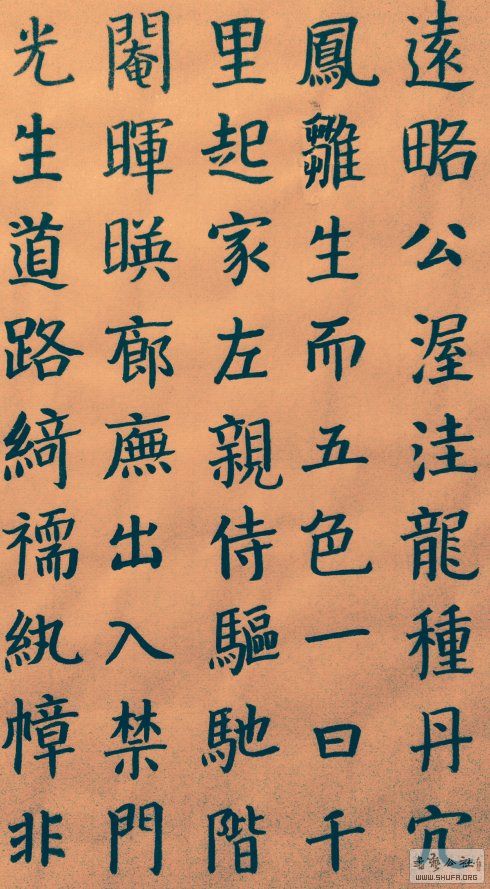 遠略公渥洼龍種丹穴
鳳雛生而五色一日千
里起家左親侍驅馳階
閹暉暎廊廡出入禁門
光生道路綺襦紈幛非
WWW.SHUFA.ORG